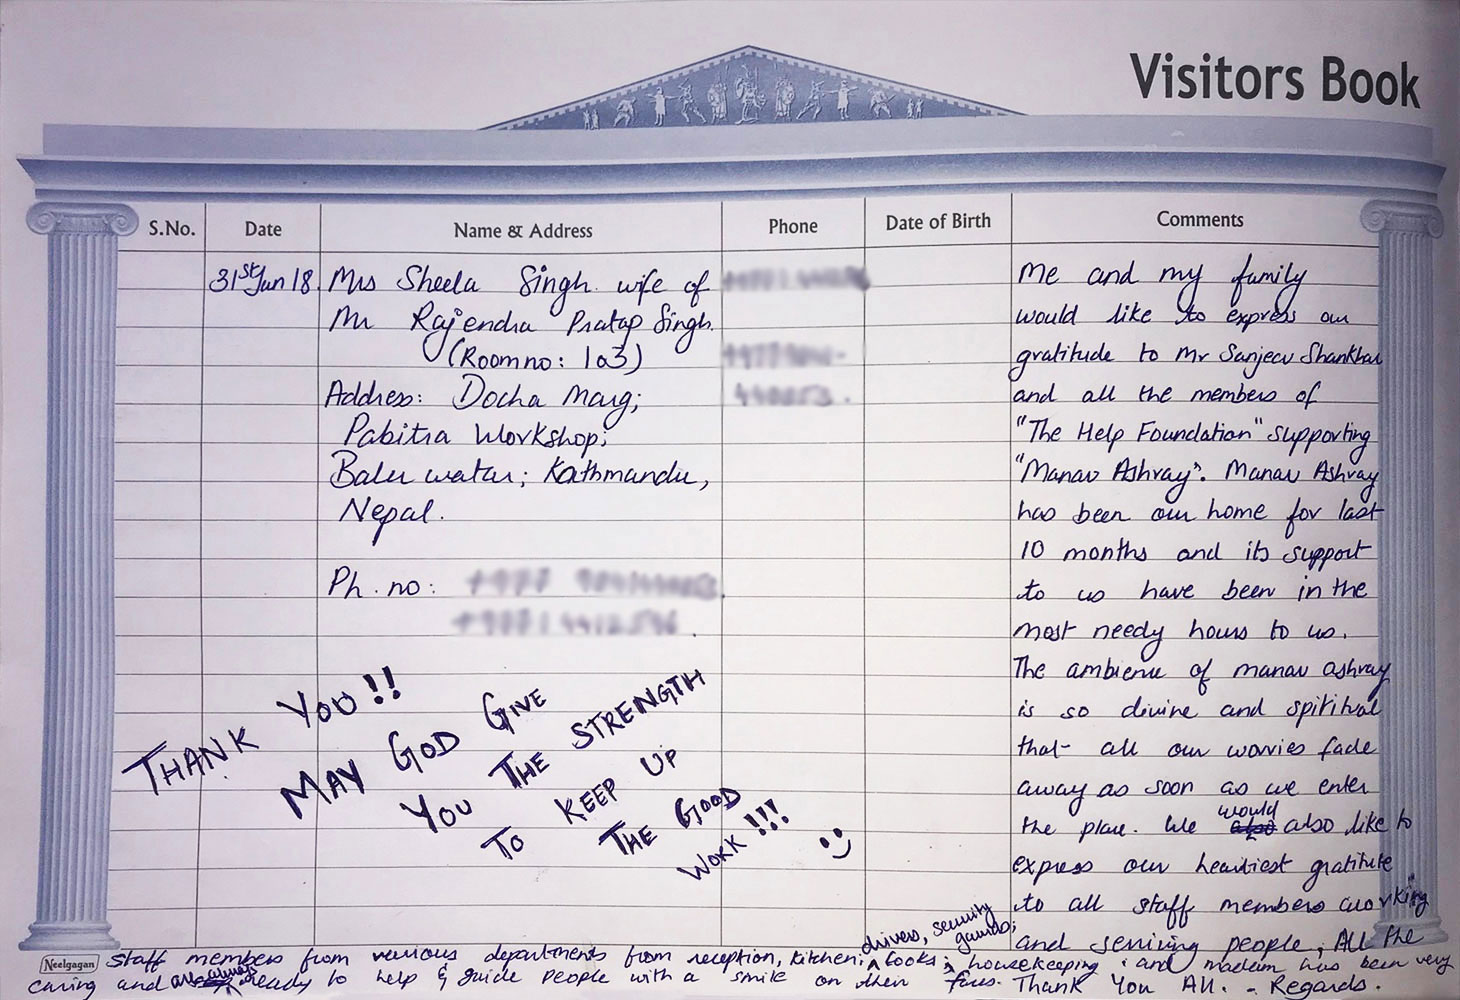 Visitors Book
S.No. Date Name & Address Phone Date of Birth Comments
31st Jan 18
Mrs Sheela Singh wife of
Mr Rajendra Pratap Singh.
(Room no: 103)
Address: Docha Marg;
Pabitra Workshop;
Baluwatar; Kathmandu,
Nepal.
Ph. no:
THANK YOU!!
MAY GOD GIVE
YOU THE STRENGTH
TO KEEP UP
THE GOOD
WORK!!!
Me and my family
would like to express our
gratitude to Mr Sanjeev Shankhar
and all the members of
"The Help Foundation" supporting
"Manav Ashray". Manav Ashray
has been our home for last
10 months and its support
to us have been in the
most needy hours to us.
The ambience of manav ashray
is so divine and spiritual
that all our worries fade
away as soon as we enter
the place. We would also like to
express our heartiest gratitude
to all staff members working
and serving people; All the
Neelgagan
staff members from various departments from reception, kitchen; drivers, security guards; cooks; housekeeping and madam has been very
caring and are always ready to help & guide people with a smile on their faces. Thank You All. - Regards.